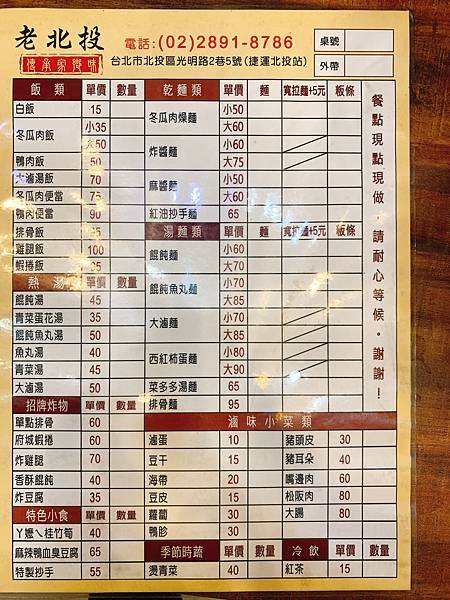 老北投
傳承家鄉味
電話:(02)2891-8786
台北市北投區光明路2巷5號(捷運北投站)
桌號
外帶
飯類 單價 數量
白飯 15
冬瓜肉飯 小35
大50
鴨肉飯 50
大滷湯飯 70
冬瓜肉便當 75
鴨肉便當 90
排骨飯
雞腿飯 100
蝦捲飯
熱湯 單價 數量
餛飩湯 45
青菜蛋花湯 35
餛飩魚丸湯 50
魚丸湯 40
青菜湯 45
大滷湯 50
招牌炸物 單價 數量
單點排骨 60
府城蝦捲 60
炸雞腿 70
香酥餛飩 40
炸豆腐 35
特色小食 單價 數量
ㄚ嬤ㄟ桂竹筍 40
麻辣鴨血臭豆腐 65
特製抄手 55
乾麵類 單價 麵 寬拉麵+5元 板條
冬瓜肉燥麵 小50
大60
炸醬麵 小60
大75
麻醬麵 小50
大60
紅油抄手麵 65
湯麵類 單價 麵 寬拉麵+5元 板條
餛飩麵 小60
大70
餛飩魚丸麵 小70
大85
大滷麵 小70
大85
西紅柿蛋麵 小80
大90
菜多多湯麵 65
排骨麵 95
滷味小菜類
滷蛋 10
豆干 15
海帶 20
豆皮 15
蘿蔔 30
鴨胗 30
豬頭皮 30
豬耳朵 40
嘴邊肉 60
松阪肉 80
大腸 80
季節時蔬 單價 數量
燙青菜 40
冷飲 單價 數量
紅茶 15
餐點現點現做，請耐心等候。謝謝!